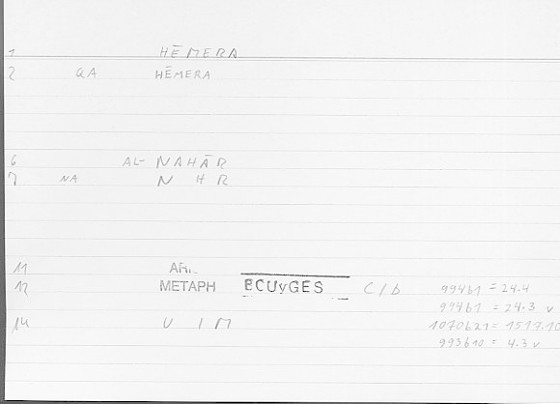 1 HĒMERA
2 QA HĒMERA
6 AL- NAHĀR
7 NA N H R
11 AR.
12 METAPH ECUyGES C/b 99461 = 24.4
99461 = 24.3 v
14 U I M 1070621 = 1517.10
993610 = 4.3 v